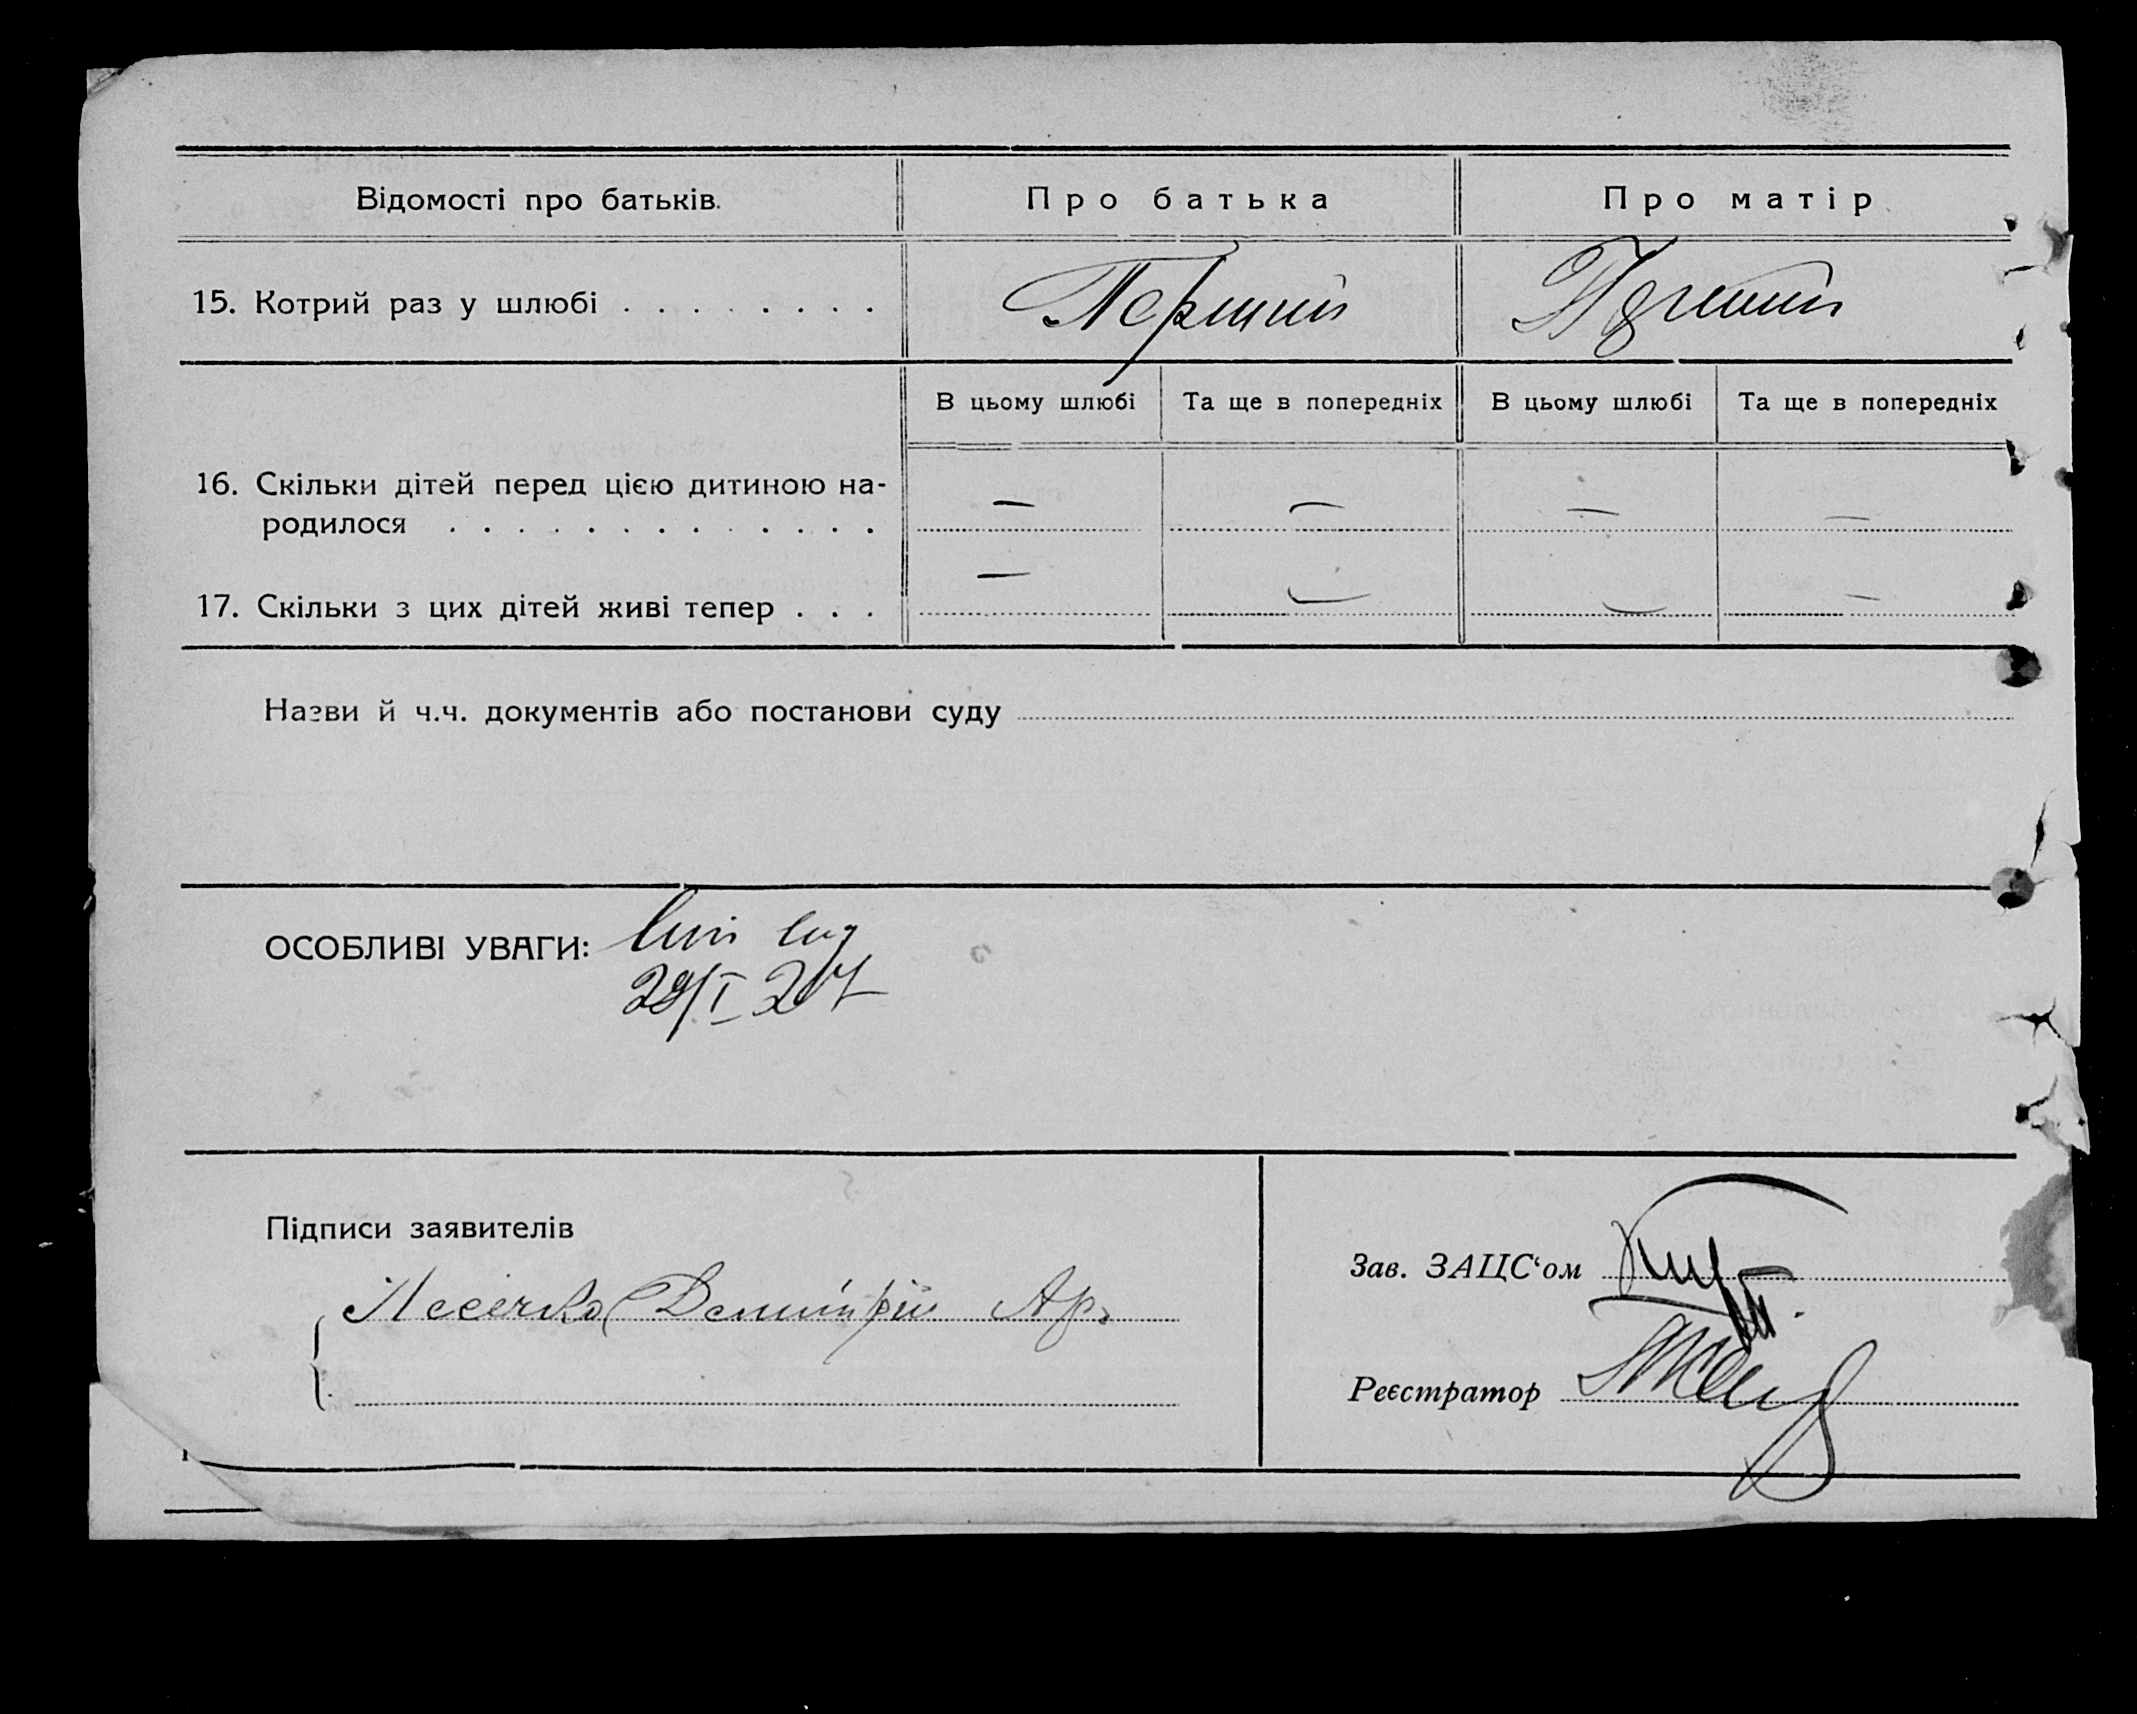 Відомості про батьків.
Про батька
Про матір
15. Котрий раз у шлюбі . . . . . . . .
Перший
Перший
В цьому шлюбі
Та ще в попередніх
В цьому шлюбі
Та ще в попередніх
16. Скільки дітей перед цією дитиною на-
родилося . . . . . . . . . . . . .
— — — —
17. Скільки з цих дітей живі тепер . . .
— — — —
Назви й ч.ч. документів або постанови суду
ОСОБЛИВІ УВАГИ:
29/I 27
Підписи заявителів
Ар.
Зав. ЗАЦС‘ом
Реєстратор